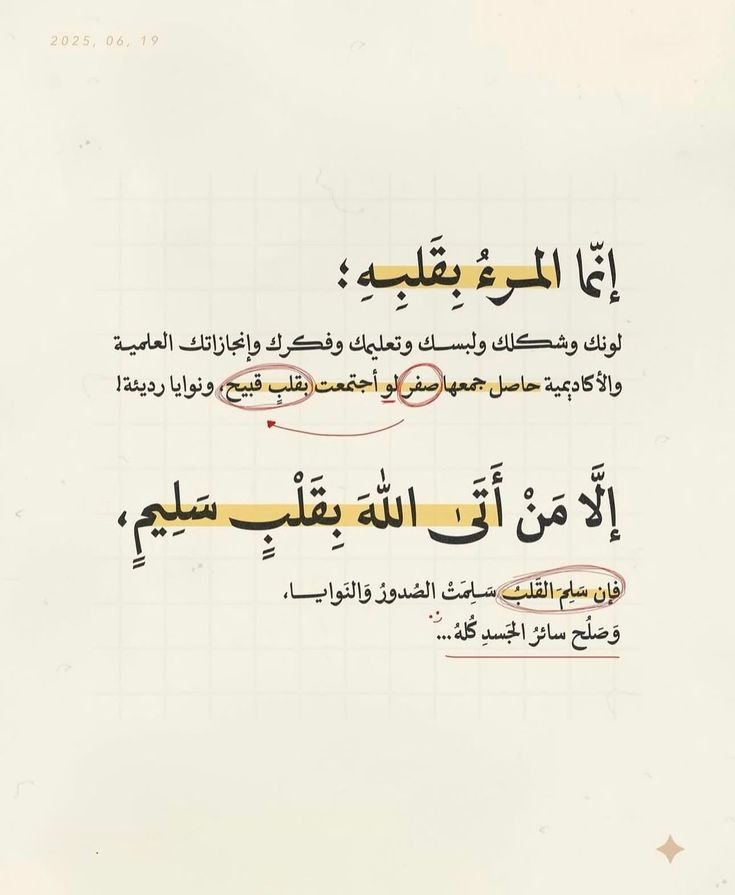 2025, 06, 19
إنّما المرءُ بِقَلبِهِ؛
لونك وشكلك ولبسك وتعليمك وفكرك وإنجازاتك العلمية
والأكاديمية حاصل جمعها صفر لو أجتمعت بقلبٍ قبيح، ونوايا رديئة!
إلَّا مَنْ أَتَى اللهَ بِقَلْبٍ سَلِيمٍ،
فإن سَلِمَ القَلبُ سَلِمَتْ الصُدورُ وَالنَوايا،
وَصَلُح سائرُ الجَسدِ كُلهُ...